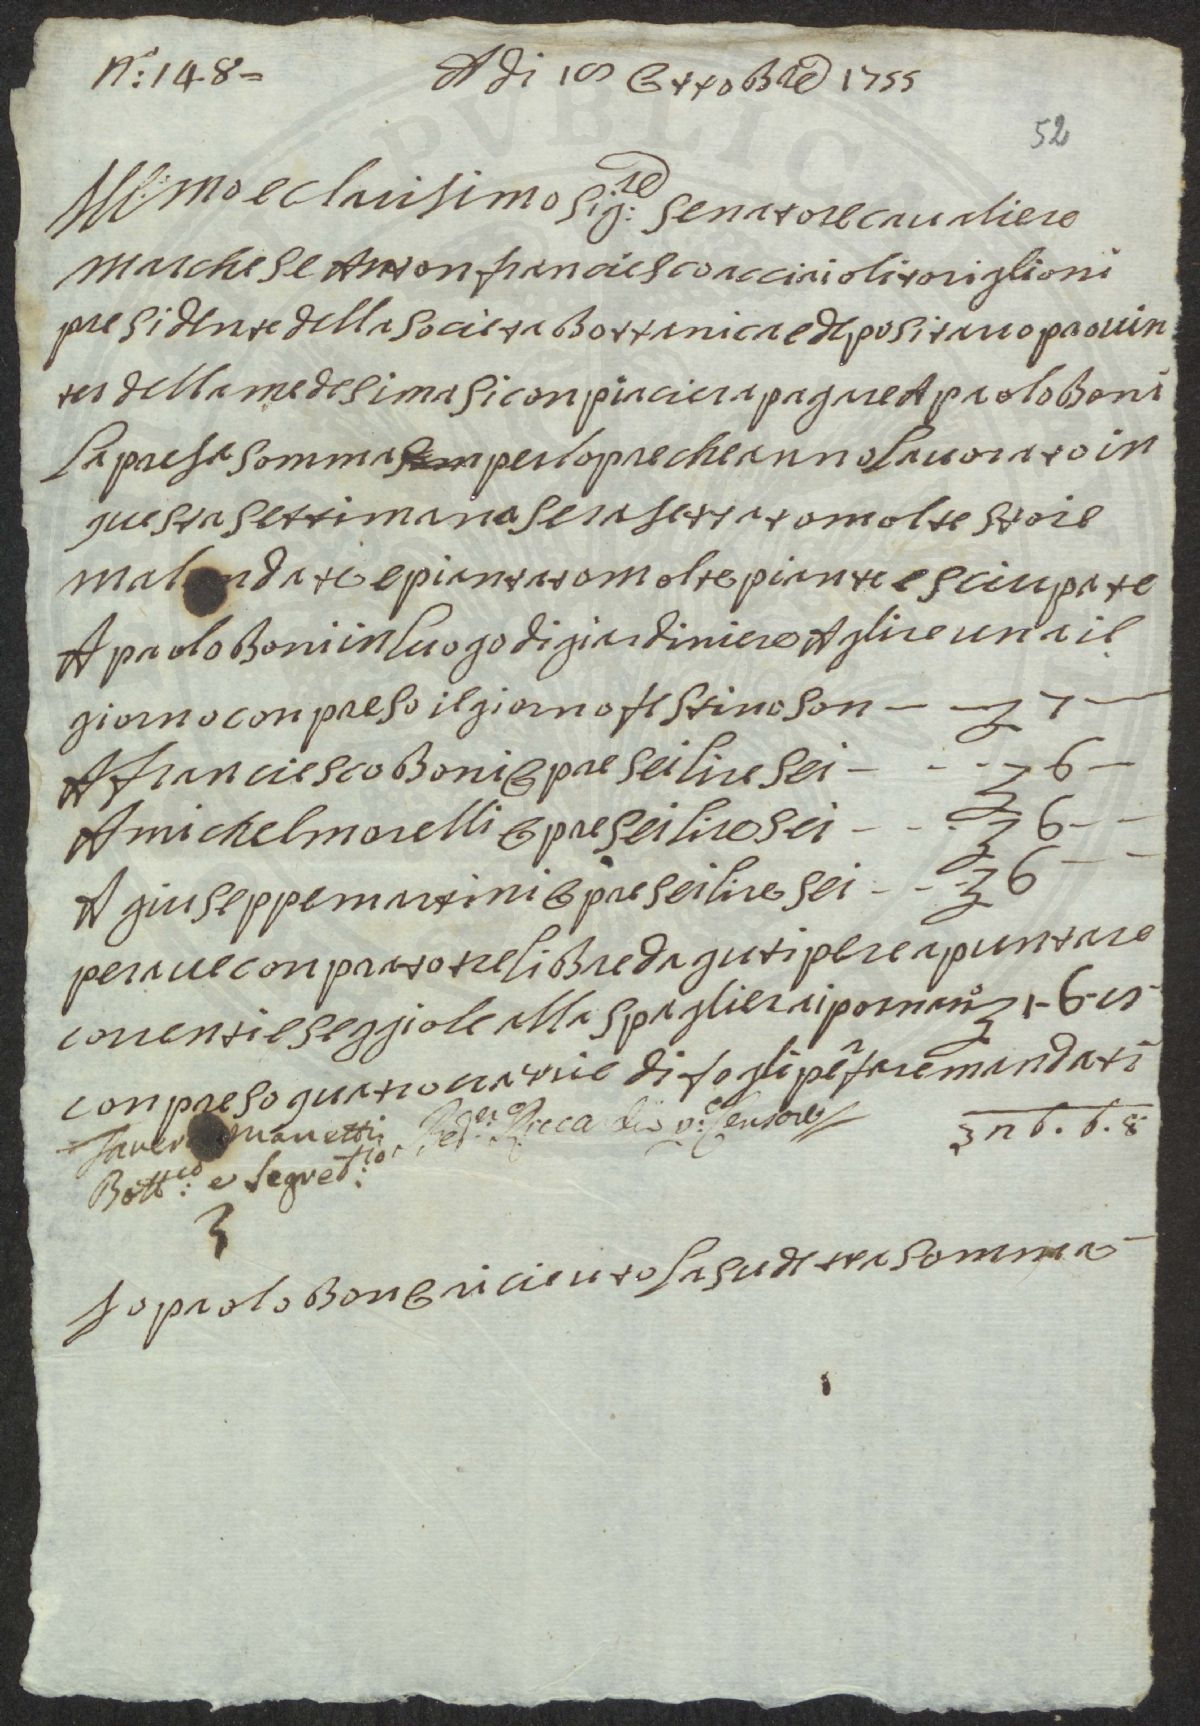 N°: 148=
A di 18 Ottobre 1755
52
Ill:mo e clarisimo Sig:re Senatore caualiere
marchese Anton franciesco acciaioli toriglioni
presidente della societa Bottanica e depositario prouin
ter della medesima si conpiaciera pagare A paolo Boni
la presa somma per lopre che anno lauorato in
questa settimana sera settato molte stoie
mal ndate e piantato molte piante e sciupate
A paolo Boni in luogo di giardiniere A glire una il
giorno con preso il giorno festiuo son — 7 —
A franciesco Boni Opre sei lire sei — 6 —
A michel morelli Opre sei lire sei — 6 —
A giuseppe martini Opre sei lire sei — 6
per aue conprato tre liBre d aguti pere apuntare
correnti e seggiole alla spagliera i 1-6-
con preso quatro di fogli per fare mandati
Sauer Manetti
Bott:co e Segret:rio
Fed:co Riccardi p:o Censore
6. 6. 8
Io paolo Boni O riceuto la sudetta somma